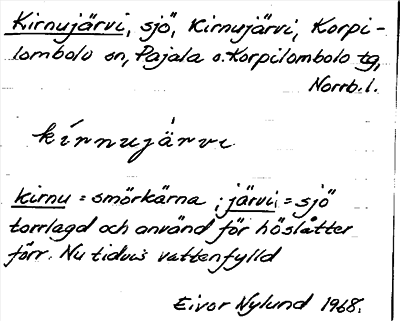 Kirnujärvi, sjö, Kirnujärvi, Korpi-
lombolo sn, Pajala o. Korpilombolo tg,
Norrb. l.
kírnujä̀rvi
kirnu = smörkärna ; järvi = sjö
torrlagd och använd för höslåtter
förr. Nu tidvis vattenfylld
Eivor Nylund 1968.